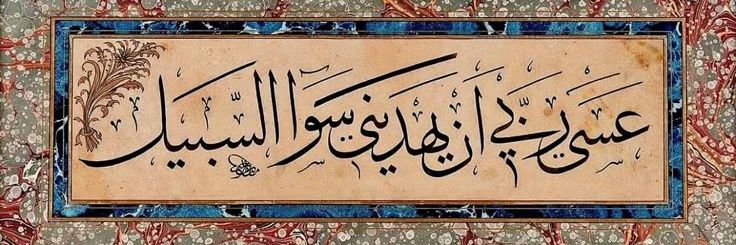 عَسَى رَبِّي اَنْ يَهْدِيَنِي سَوَاۤءَ السَّبِيلِ